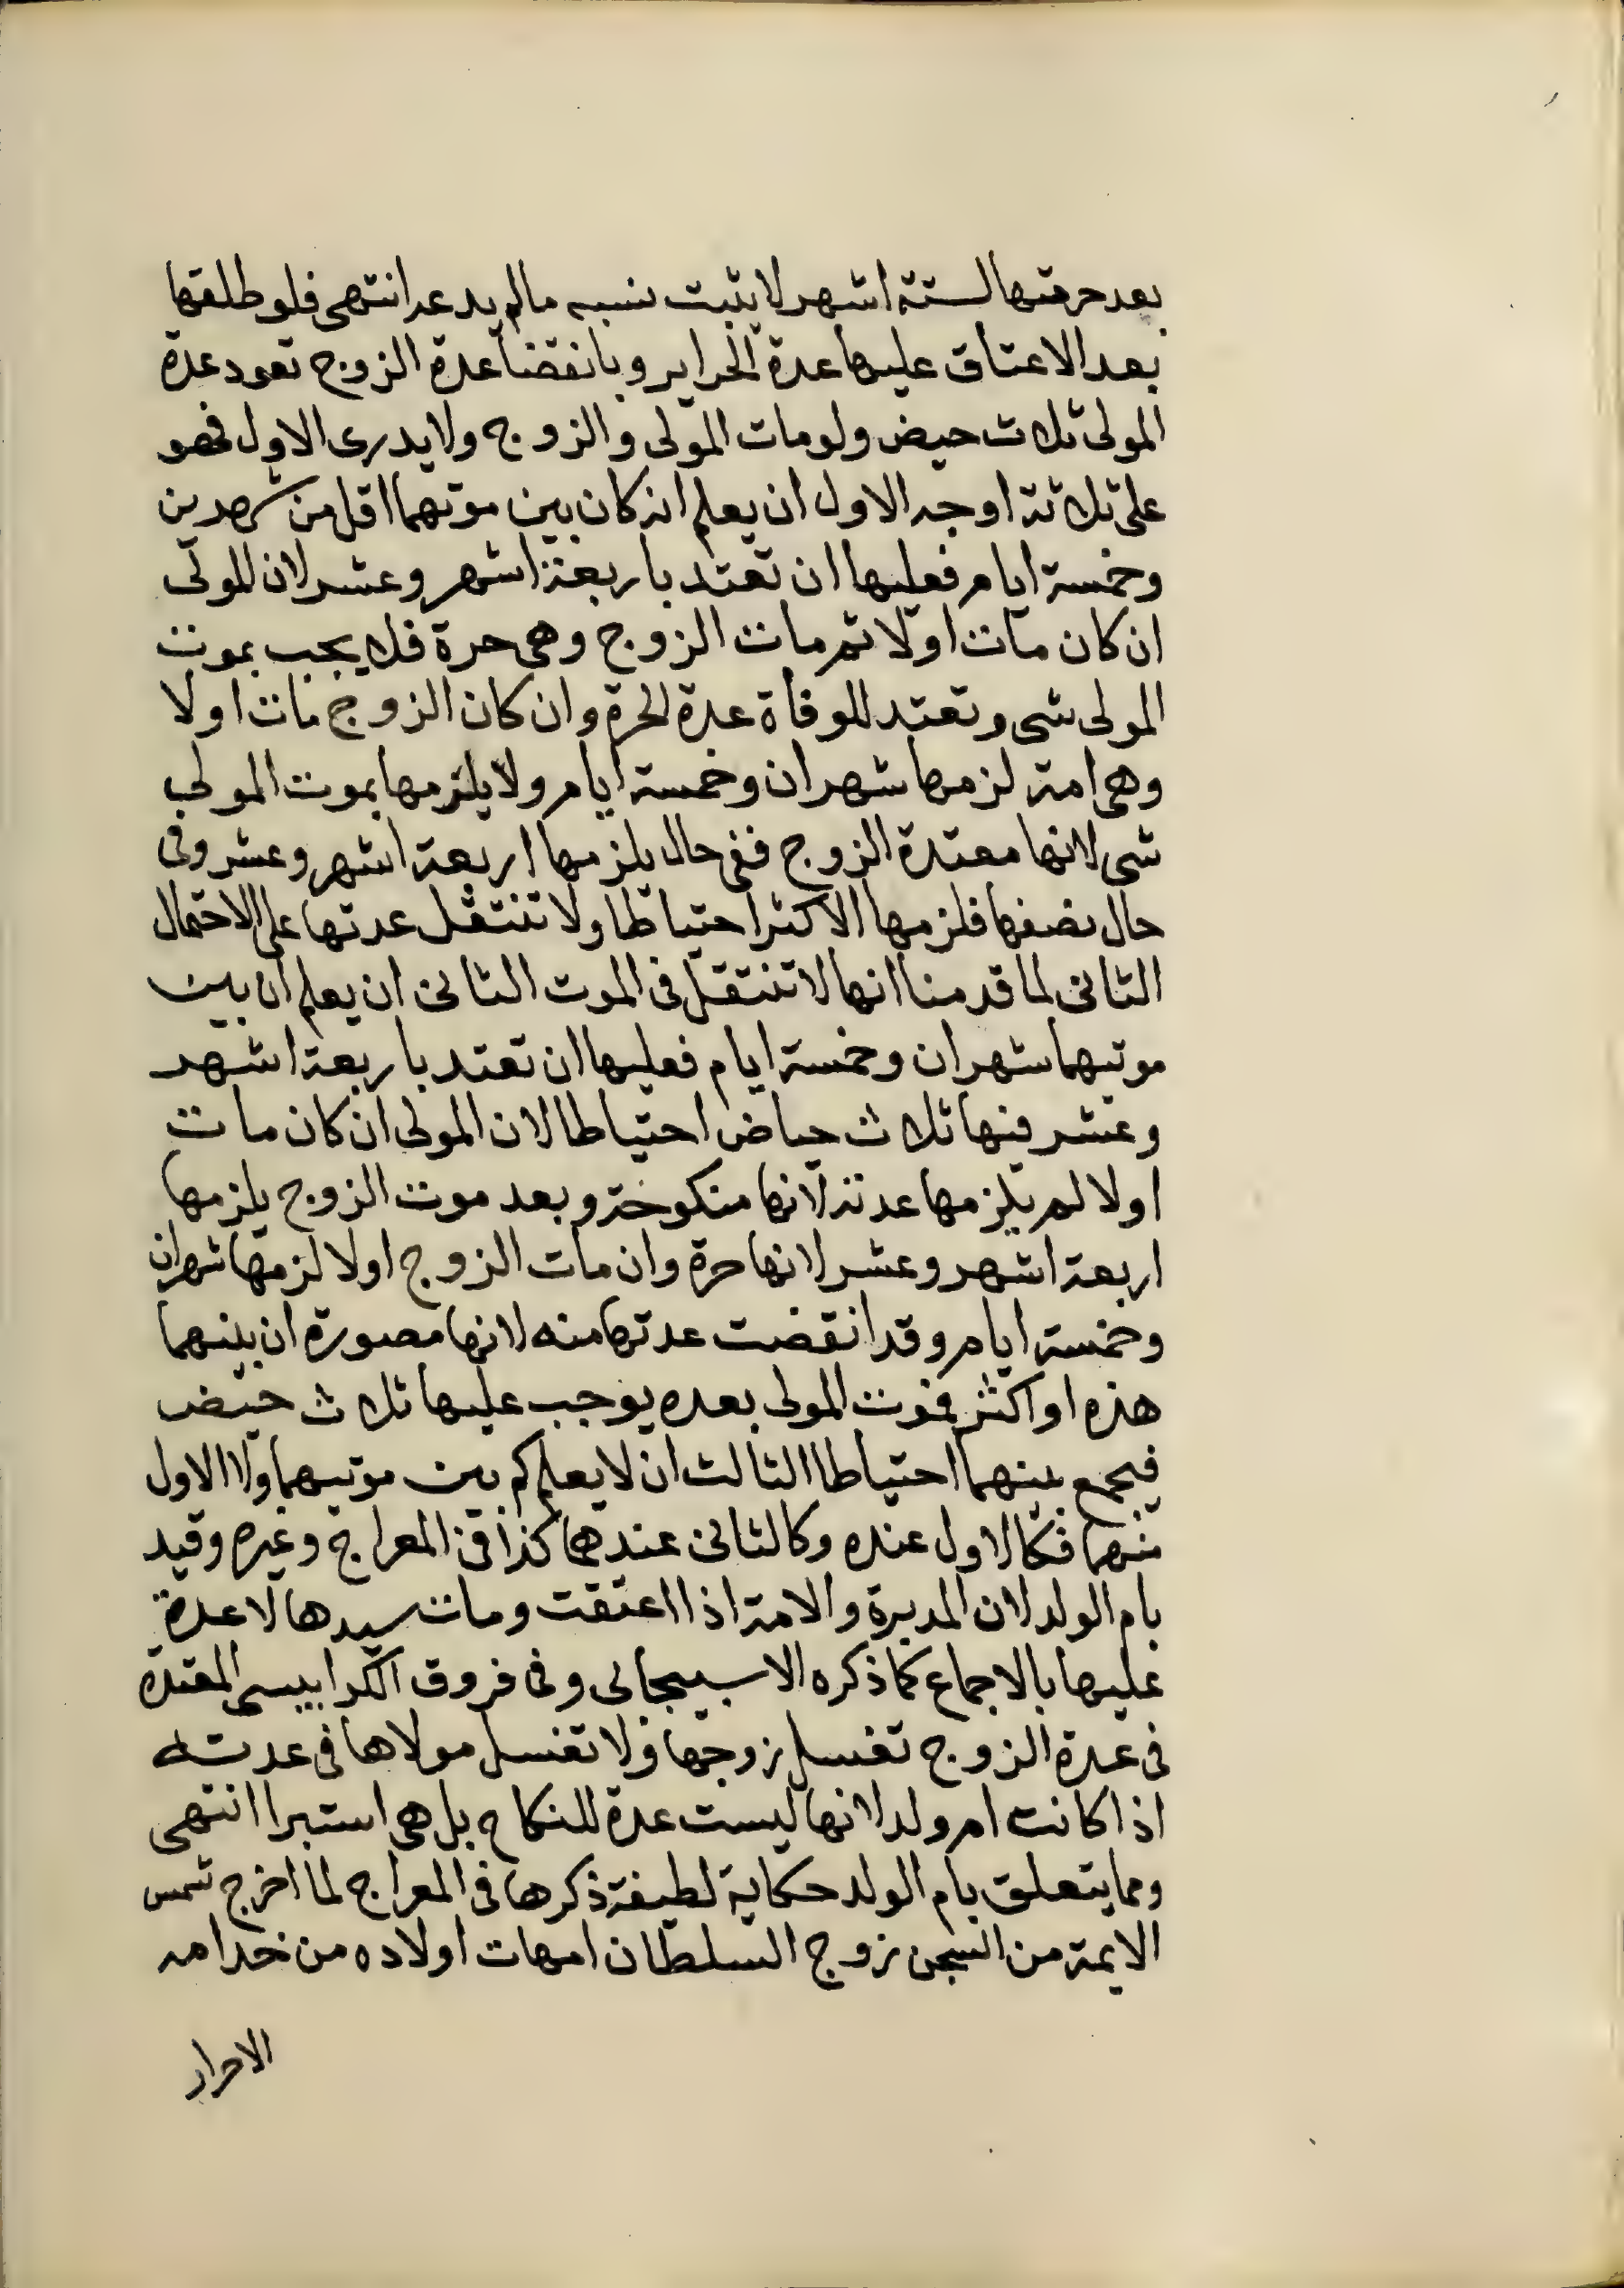 بعد حرمتها لستة اشهر لا يثبت نسبه مالم يدعه انتهى فلو طلقها
بعد الاعتاق عليها عدة الحراير وبانقضا عدة الزوج تعود عدة
المولى ثلاث حيض ولو مات المولى والزوج ولا يدرى الاول فهو
على ثلاثة اوجه الاول ان يعلم انه كان بين موتهما اقل من شهرين
وخمسة ايام فعليها ان تعتد باربعة اشهر وعشر لان المولى
ان كان مات اولا ثم مات الزوج وهى حرة فلا يجب بموت
المولى شى وتعتد للوفاة عدة الحرة وان كان الزوج مات اولا
وهى امة لزمها شهران وخمسة ايام ولا يلزمها بموت المولى
شى لانها معتدة الزوج ففى حال يلزمها اربعة اشهر وعشر وفى
حال نصفها فلزمها الاكثر احتياطا ولا تنتقل عدتها على الاحتمال
الثانى لما قدمنا انها لا تنتقل فى الموت الثانى ان يعلم ان بين
موتيهما شهران وخمسة ايام فعليها ان تعتد باربعة اشهر
وعشر فيها ثلاث حياض احتياطا لان المولى ان كان مات
اولا لم يلزمها عدته لانها منكوحة وبعد موت الزوج يلزمها
اربعة اشهر وعشر لانها حرة وان مات الزوج اولا لزمها شهران
وخمسة ايام وقد انقضت عدتها منه لانها مصورة ان بينهما
هذه او اكثر فموت المولى بعده يوجب عليها ثلاث حيض
فيجمع بينهما احتياطا الثالث ان لا يعلم كم بين موتيهما ولا الاول
منهما فكالاول عنده وكالثانى عندهما كذا فى المعراج وغيره وقيد
بام الولد لان المدبرة والامة اذا اعتقت ومات سيدها لا عدة
عليها بالاجماع كما ذكره الاسبيجابى وفى فروق الكرابيسى المعتدة
فى عدة الزوج تغسل زوجها ولا تغسل مولاها فى عدته
اذا كانت ام ولد لانها ليست عدة للنكاح بل هى استبرا انتهى
ومما يتعلق بام الولد حكاية لطيفة ذكرها فى المعراج لما اخرج شمس
الايمة من السجن زوج السلطان امهات اولاده من خدامه
الاحرار